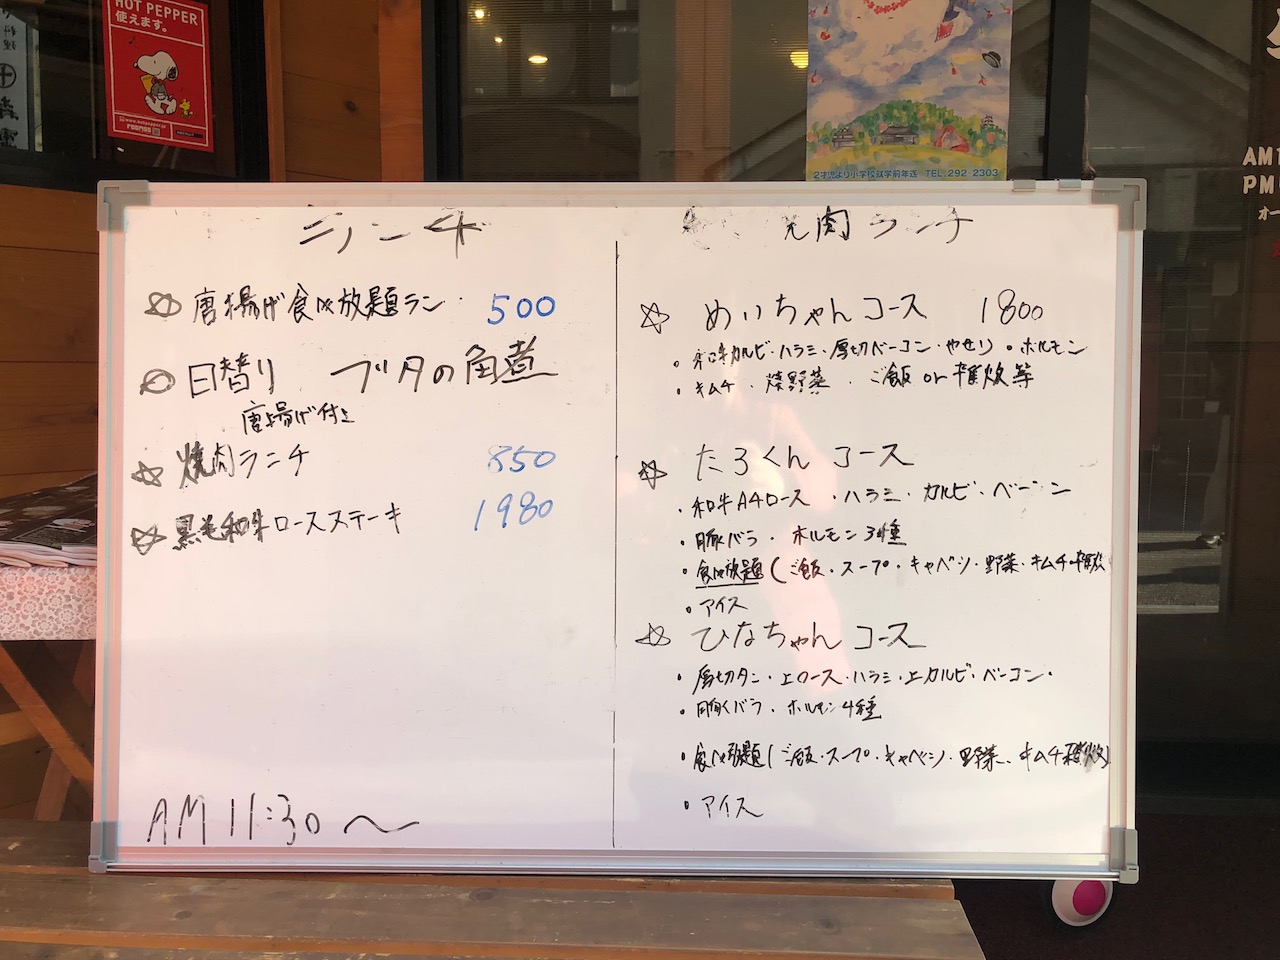 HOT PEPPER
使えます。
2才児より小学校就学前年迄 TEL.292 2303
AM
PM
ランチ
唐揚げ食べ放題ラン 500
日替り ブタの角煮
唐揚げ付き
焼肉ランチ 850
黒毛和牛ロースステーキ 1980
AM 11:30〜
肉ランチ
めいちゃんコース 1800
・和牛カルビ・ハラミ・厚切ベーコン・やせり・ホルモン
・キムチ・焼野菜・ご飯or雑炊等
たろくんコース
・和牛A4ロース・ハラミ・カルビ・ベーコン
・豚バラ・ホルモン3種
・食べ放題(ご飯・スープ・キャベツ・野菜・キムチ・雑炊
・アイス
ひなちゃんコース
・厚切タン・上ロース・ハラミ・上カルビ・ベーコン・
・豚バラ・ホルモン4種
・食べ放題(ご飯・スープ・キャベツ・野菜・キムチ雑炊)
・アイス